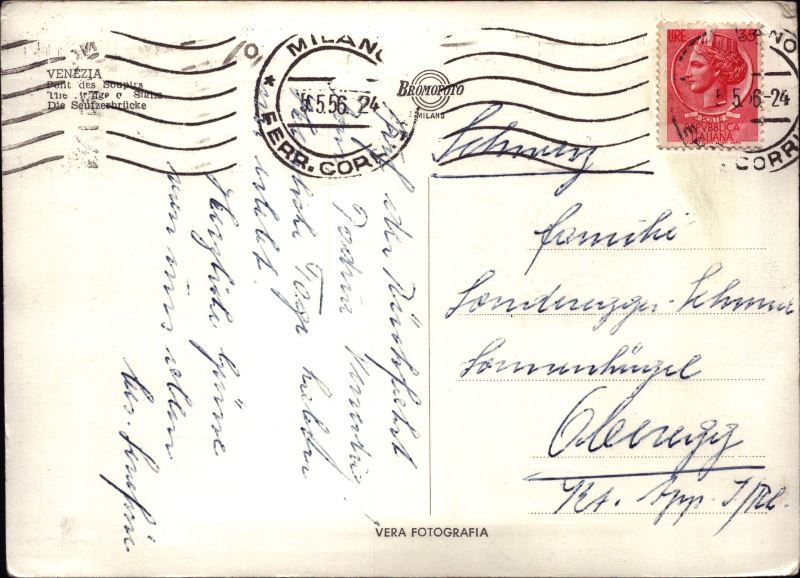 VENEZIA
Pont des Soupirs
The Bridge of Sighs
Die Seufzerbrücke
MILANO
5.5.56.-24
* FERR.CORR.
BROMOFOTO
MILANO
LIRE 35
POSTE
REPVBBLICA
ITALIANA
MILANO
5.5.56.-24
CORRI
Schweiz
Familie
Sonderegger-Schmid
Sonnenhügel
Oberegg
Kt. App. I/Rh.
Auf der Rückfahrt
von
Tage haben
erlebt.
Herzliche Grüsse
von uns allen
VERA FOTOGRAFIA